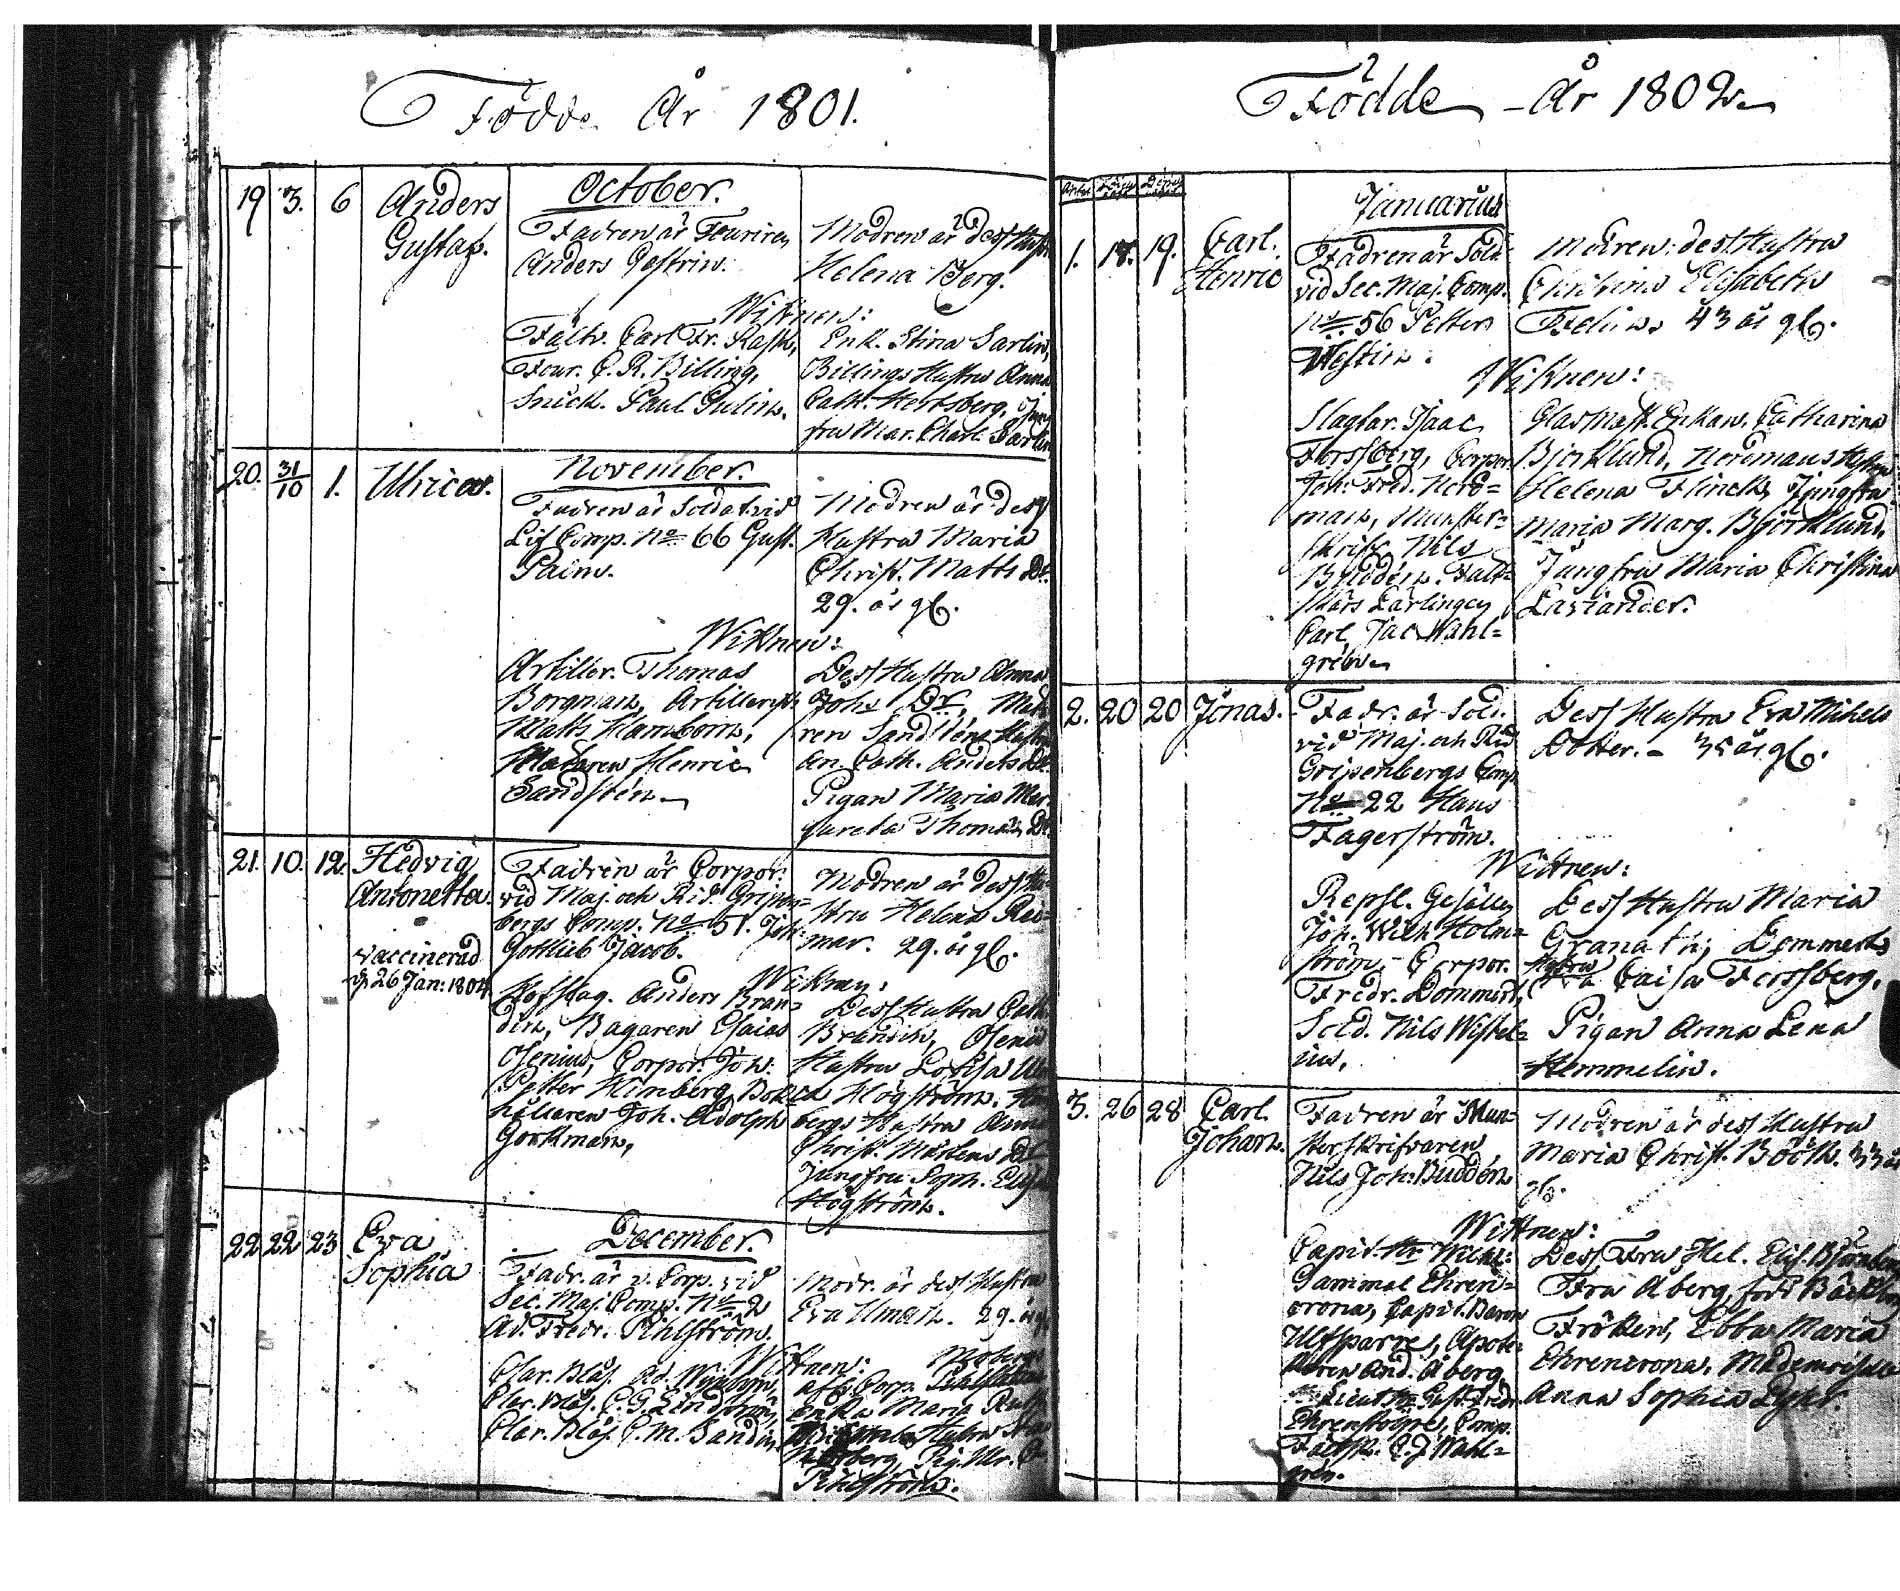 Födde År 1801.
19 3. 6 Anders Gustaf.
October.
Fadren är Fouriren
Anders Gestrin.
Modren är dess Hustru
Helena Berg.
Wittnen:
Fältv. Carl Fr. Rask,
Four. C. R. Billing,
Snick. Paul Gulin.
Enk. Stina Sarlin,
Billings Hustru Anna
Cath. Hertsberg, Jung
fru Mar. Charl. Sarlin
20. 31/10 1. Ulrica.
November.
Fadren är Soldat vid
Lif Comp. No 66 Gust.
Palm.
Modren är dess
Hustru Maria
Christ. Matts Dr.
29. år gl.
Wittnen:
Artiller. Thomas
Borgman, Artillerist
Matts Hambom,
Henric
Sandstén
Dess Hustru Anna
Johs Dr,
ren Sandsténs Hustru
An. Cath. Anders Dr.
Pigan Maria Mar-
gareta Thomas Dr.
21. 10. 12. Hedvig
Antonetta.
vaccinerad
d. 26 Jan: 1804
Fadren är Corpor:
vid Maj. och Rid. Gripen-
bergs Comp. No 51. Joh.
Gottlieb Jacob.
Modren är dess Hu-
stru Helena Rei-
mar. 29. år gl.
Wittnen:
Hofslag. Anders Bran-
din, Bagaren Esaias
Osenius, Corpor: Joh:
Petter Himberg, Bok
hållaren Joh. Adolph
Gorkman,
Dess Hustru Cath.
Brandin, Oseni
Hustru Lovisa Ul
Högström.
bergs Hustru Anna
Christ. Mårtens Dr
Jungfru Soph. Elis
Högström.
22 22 23 Eva
Sophia
December.
Fadr. är v. Corp. vid
Sec. Maj. Comp. No 2
Ad. Fredr. Pihlström.
Modr. är dess Hustru
Eva Uman. 29. år gl
Wittnen:
Clar. Blås. Ad.
Clar. Blås. C. G. Lindström,
Clar. Blås. C. M. Sandin
afl. Corp. Pihlströms
enka Maria
Pig. Ulr.
Pihlström.
Födde År 1802
Januarius
1. 18. 19. Carl.
Henric
Fadren är Sold.
vid Sec. Maj. Comp.
No 56 Petter
Westin.
Modren: dess Hustru
Christina Elisabeth
Felin. 43 år gl.
Wittnen:
Slagtar. Isaac
Forssberg, Corpor.
Joh: Fred. Nord-
man, Munster-
skrifv. Nils
Buddén. Fält-
skärs Lärlingen
Carl Jac. Wahl-
grén
Glasmäst. Enkan, Catharina
Björklund, Nordmans Hustru
Helena Flinck, Jungfru
Maria Marg. Björklund,
Jungfru Maria Christina
Lavianaer.
2. 20 20 Jonas.
Fadr. är Sold.
vid Maj. och Rid
Gripenbergs Comp.
No 22 Hans
Fagerström.
Dess Hustru Eva Mihels
Dotter. - 35 år gl.
Wittnen:
Repsl. Gesällen
Joh. Wilh Holm-
ström, - Corpor.
Fredr. Dommert,
Sold. Nils Wistel-
ius,
Dess Hustru Maria
Granath, Dommerts
Hustru Caisa Forssberg.
Pigan Anna Lena
Hemmelin.
3. 26 28 Carl
Johan.
Fadren är Mun-
sterskrifvaren
Nils Joh: Buddén
Modren är dess Hustru
Maria Christ. Bööth. 33 år
gl.
Wittnen:
Gammal Ehren-
crona, Capit. Baron
Ulfsparre, Apote-
karen And. Åberg,
Lieutn Gust. Fredr
Ehrenstolpe, Comp.
Fältsk. C. J. Wahl-
grén.
Dess Fru Hel. Elis. Björnberg
Fru Åberg, född
Fröken, Ebba Maria
Ehrencrona, Mademoiselle
Anna Sophia